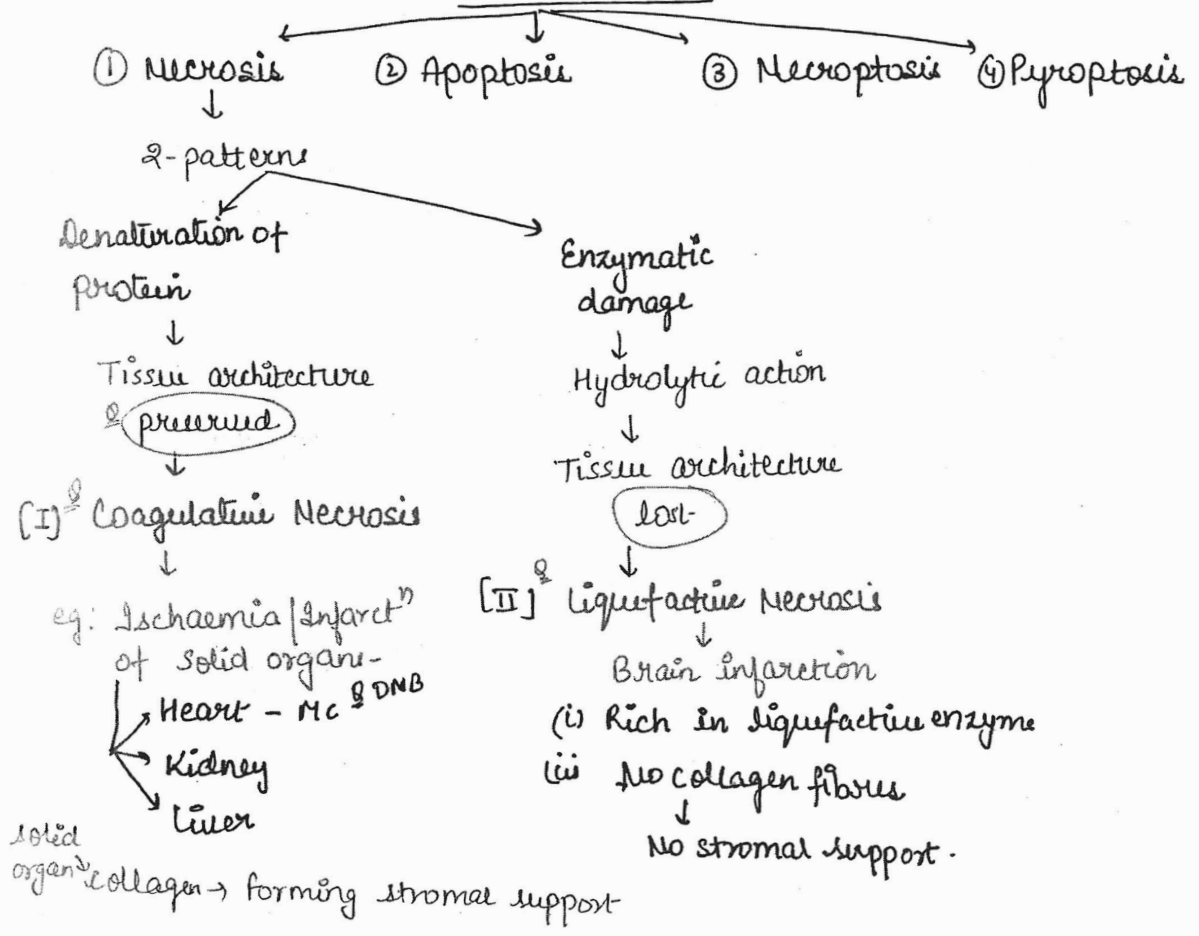 ① Necrosis ② Apoptosis ③ Necroptosis ④ Pyroptosis
2-patterns
Denaturation of
protein
Tissue architecture
Q preserved
[I] Q Coagulative Necrosis
eg: Ischaemia/Infarctⁿ
of solid organs-
Heart - Mc Q DNB
Kidney
Liver
solid
organ collagen → forming stromal support
Enzymatic
damage
Hydrolytic action
Tissue architecture
lost
[II] Q Liquefactive Necrosis
Brain infarction
(i) Rich in liquefactive enzyme
(ii) No collagen fibres
No stromal support.